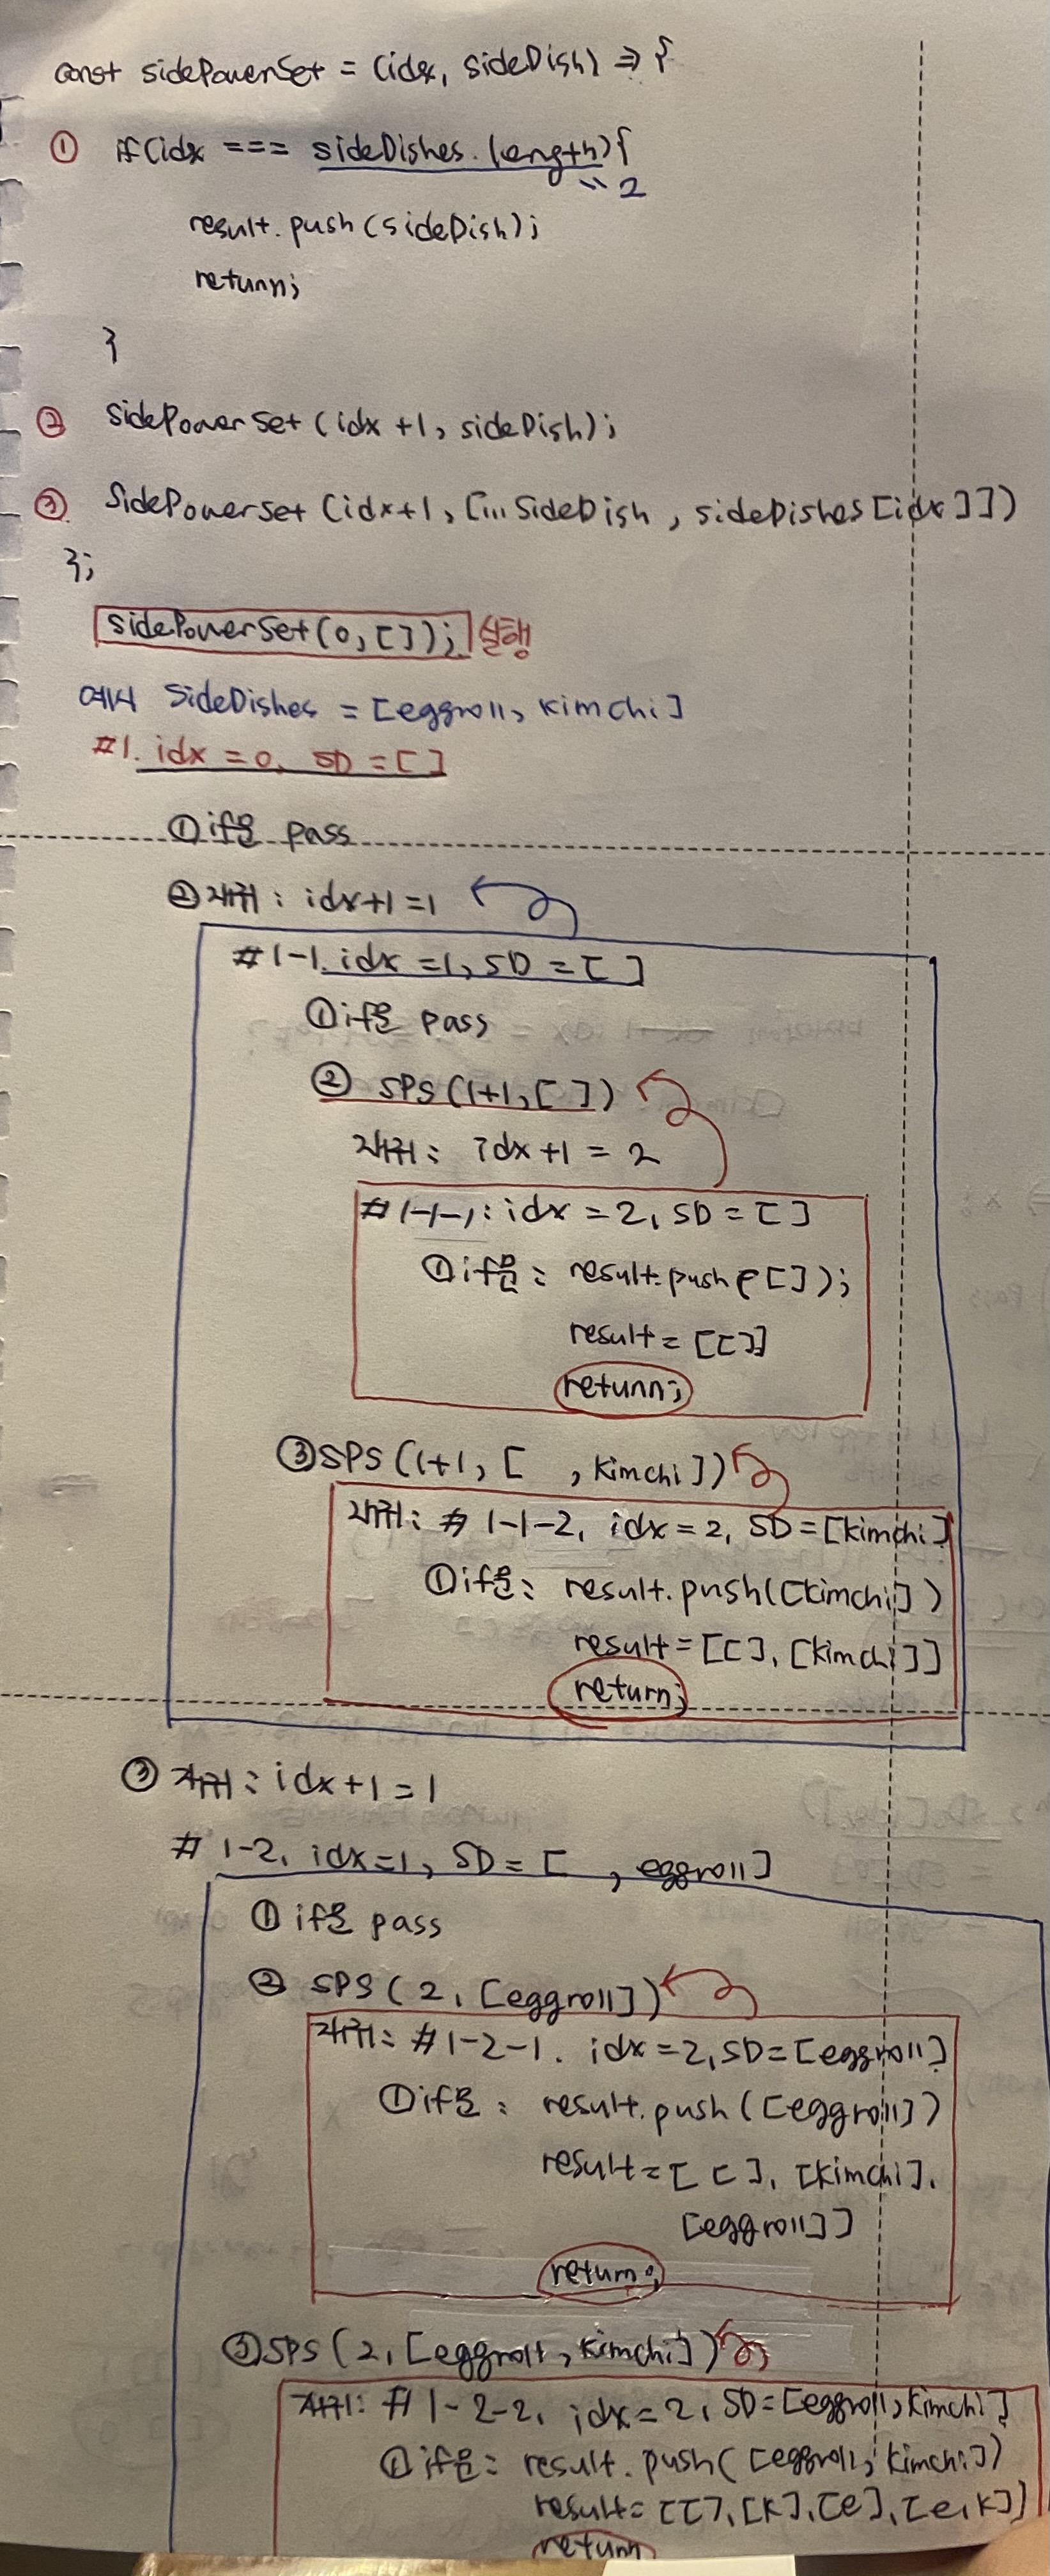 const sidePowerSet = (idx, sideDish) => {
① if(idx === sideDishes.length){
2
result.push(sideDish);
return;
}
② sidePowerSet(idx+1, sideDish);
③ sidePowerSet(idx+1, [...sideDish, sideDishes[idx]])
};
sidePowerSet(0,[]); 실행
예시 sideDishes = [eggroll, kimchi]
#1. idx = 0, SD = []
① if문 pass
② 재귀: idx+1 = 1
#1-1. idx = 1, SD = []
① if문 pass
② SPS(1+1, [])
재귀: idx+1 = 2
#1-1-1: idx = 2, SD = []
① if문: result.push([]);
result = [[]]
return;
③ SPS(1+1, [ , kimchi])
재귀: #1-1-2, idx = 2, SD = [kimchi]
① if문: result.push([kimchi])
result = [[], [kimchi]]
return;
③ 재귀: idx+1 = 1
#1-2, idx=1, SD = [ , eggroll]
① if문 pass
② SPS(2, [eggroll])
재귀: #1-2-1. idx = 2, SD = [eggroll]
① if문: result.push([eggroll])
result = [[], [kimchi],
[eggroll]]
return;
③ SPS(2, [eggroll, kimchi])
재귀: #1-2-2, idx = 2, SD = [eggroll, kimchi]
① if문: result.push([eggroll, kimchi])
result = [[], [k], [e], [e,k]]
return